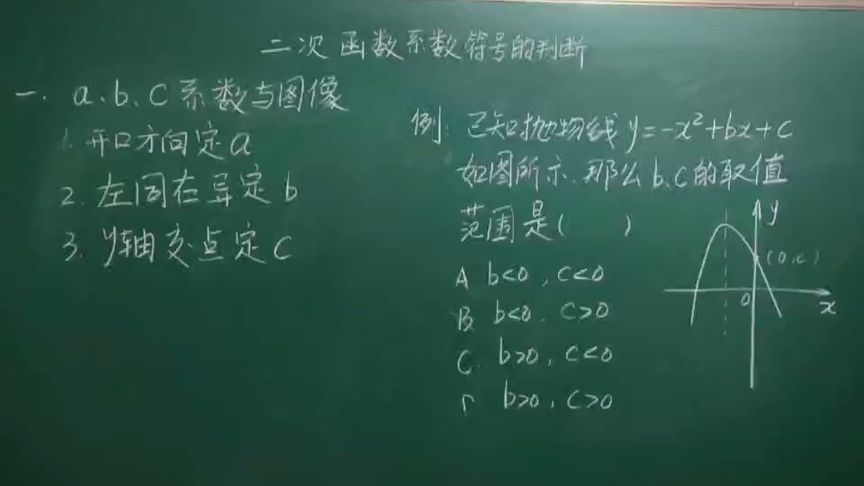 二次函数系数符号的判断
一. a、b、c系数与图像
1. 开口方向定a
2. 左同右异定b
3. y轴交点定c
例: 已知抛物线y=-x²+bx+c
如图所示.那么b、c的取值
范围是( )
A b<0, c<0
B b<0. c>0
C. b>0, c<0
b>0, c>0
y
(0,c)
0
x